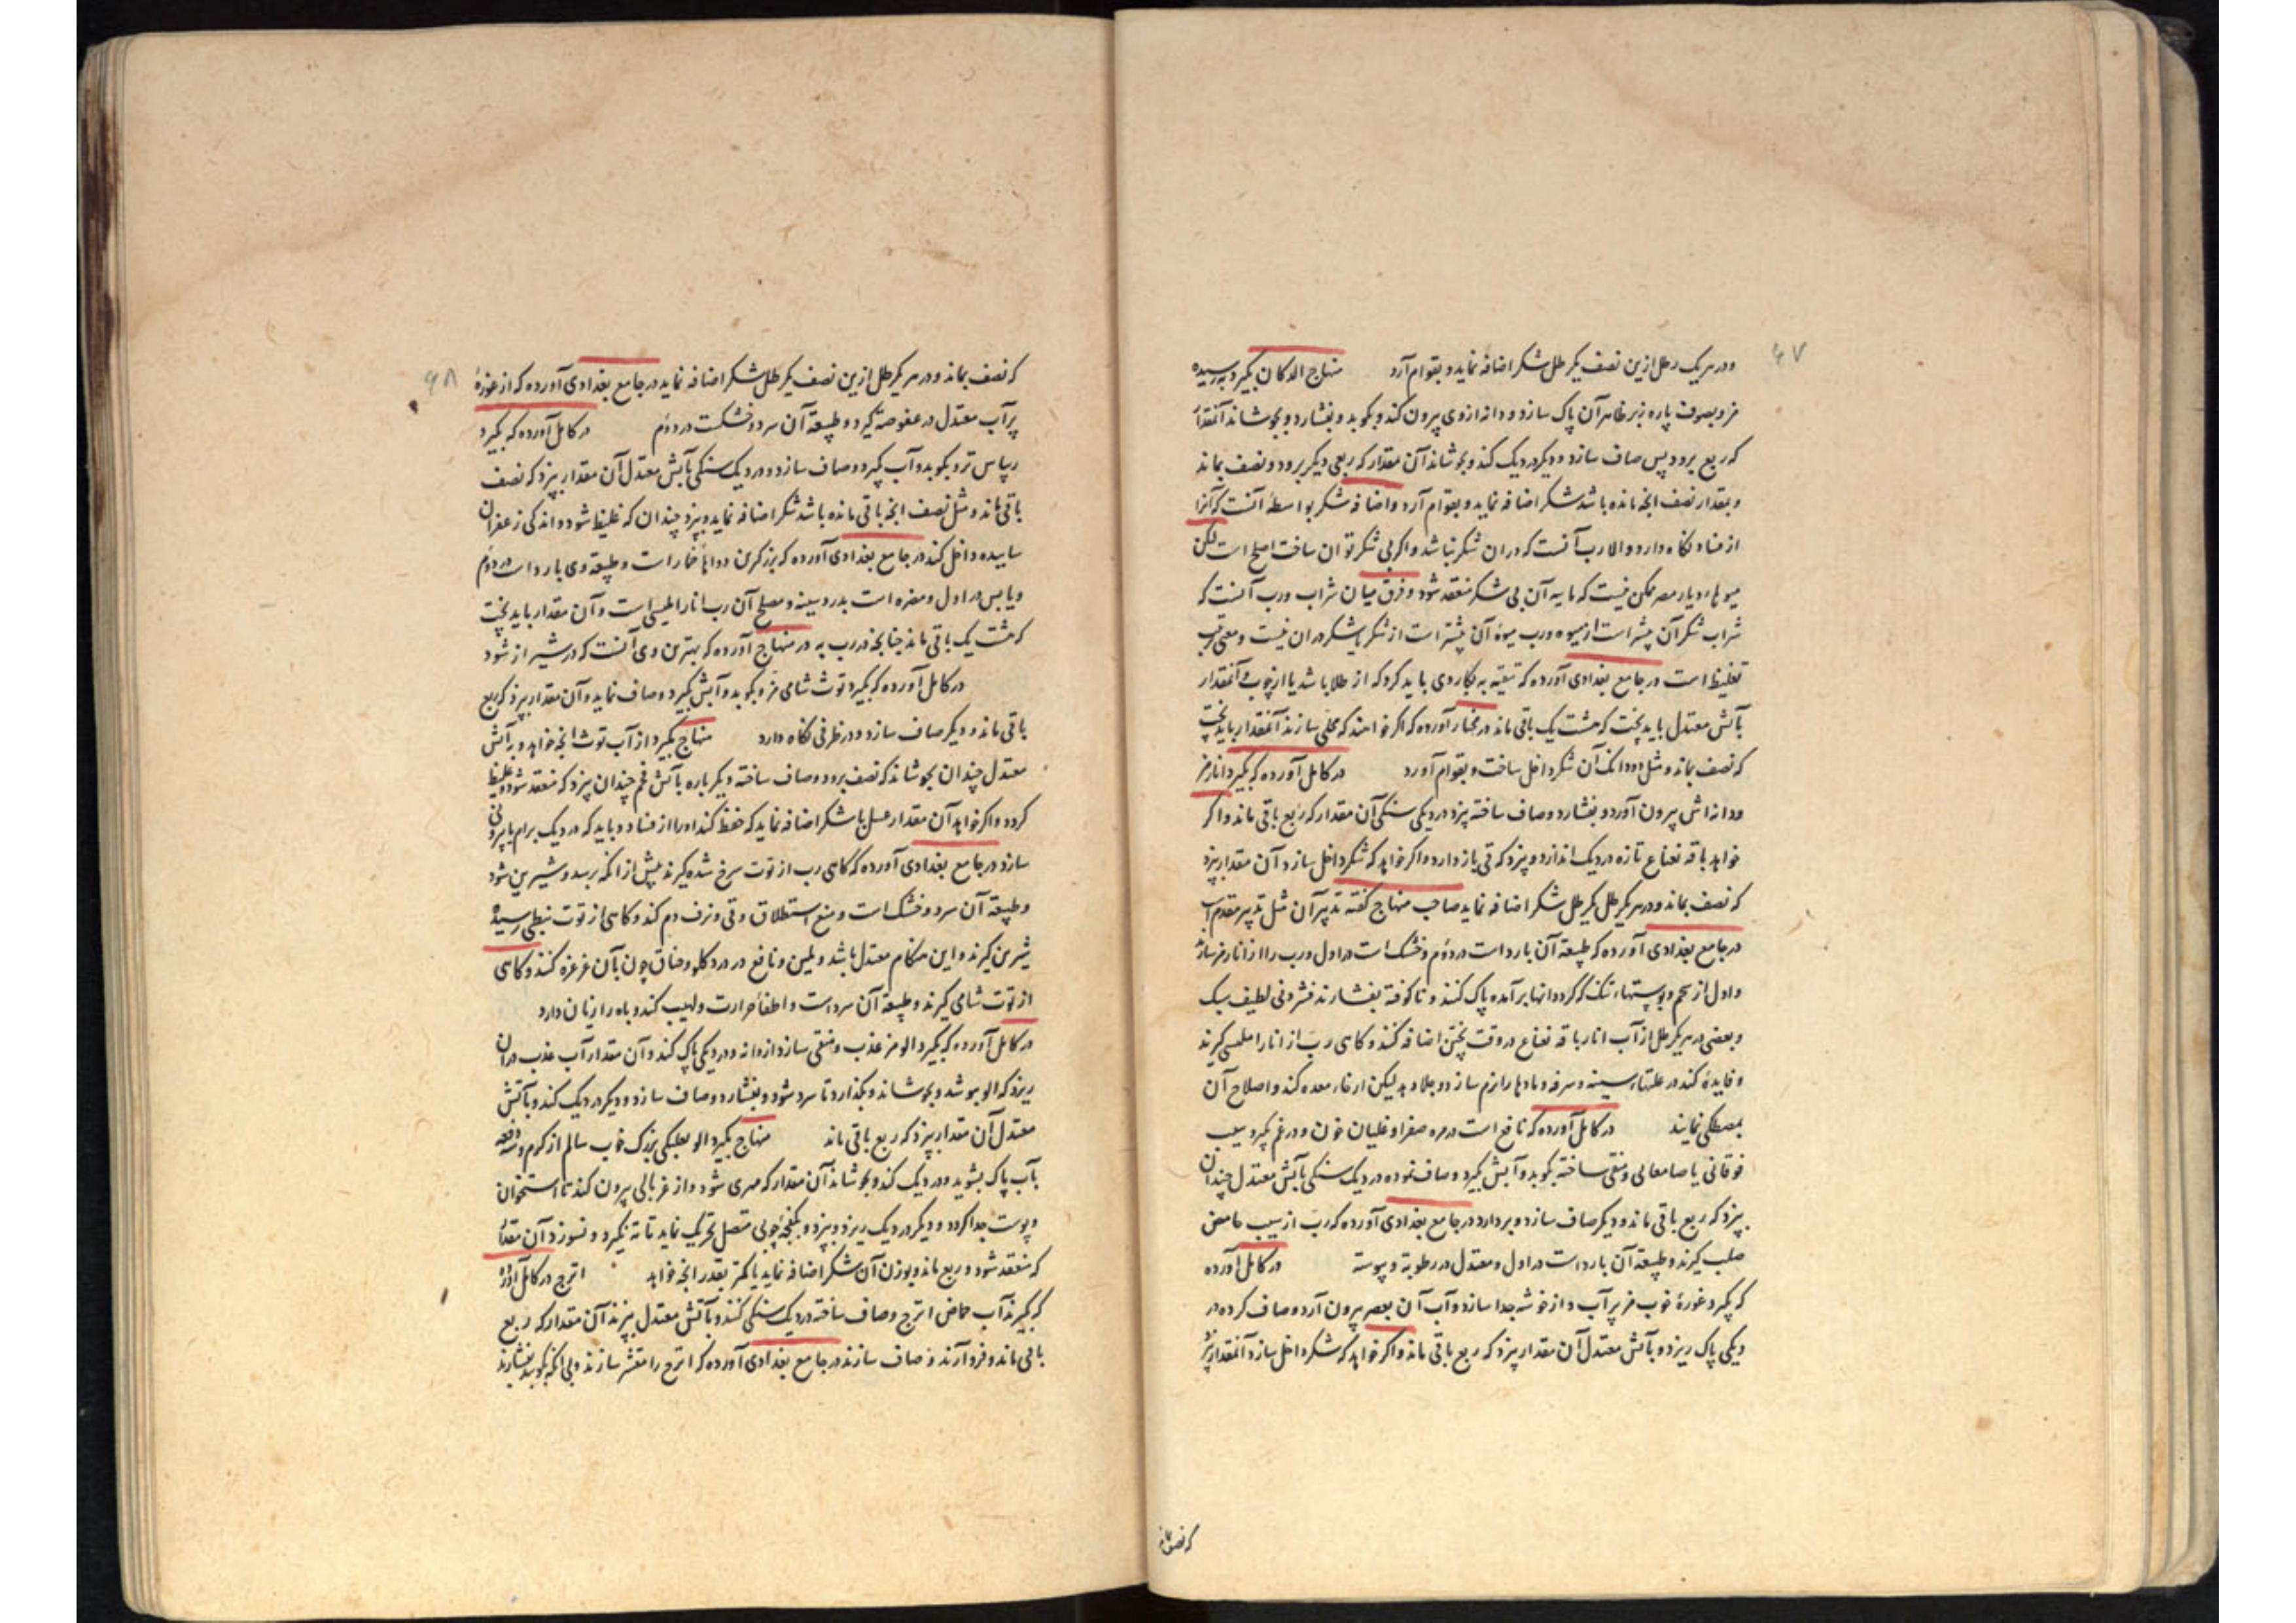 ۶۷
و در هر یک رطل ازین نصف یکرطل شکر اضافه نماید و بقوام آرد منهاج الدکان بگیرد به رسیده
مز و بصوف پاره زبر ظاهر آن پاک سازد و دانه از وی بیرون کند و بکوبد و بفشارد و بجوشاند آنمقدار
که ربع برود پس صاف سازد و دیگر در دیک کند و بجوشاند آن مقدار که ربعی دیگر برود و نصف بماند
و بقدار نصف انچه مانده باشد شکر اضافه نماید و بقوام آرد و اضافه شکر بواسطه آنست که آنرا
از فساد نگاه دارد و الا رب آنست که در ان شکر نباشد و اگر بی شکر توان ساخت اصلح است لیکن
میوهاء دیار مصر ممکن نیست که مایه آن بی شکر منعقد شود و فرق میان شراب و رب آنست که
شراب شکر آن بیشتر است از میوه و رب میوه آن بیشتر است از شکر یا شکر در ان نیست و معنی رب
تغلیظ است در جامع بغدادی آورده که تنقیه به بکاردی باید کرد که از طلا باشد یا از چوب و آنمقدار
بآتش معتدل باید پخت که هشت یک باقی ماند در مختار آورده که اگر خواهند که محلی سازند آنمقدار باید پخت
که نصف بماند و مثل دودانک آن شکر داخل ساخت و بقوام آورد در کامل آورده که بگیرد انار مز
و دانه اش بیرون آورد و بفشارد و صاف ساخته پزد در دیکی سنکی آن مقدار که ربع باقی ماند و اگر
خواهد باقه نعناع تازه در دیک اندازد و پزد که قی باز دارد و اگر خواهد که شکر داخل سازد آن مقدار پزد
که نصف بماند و در هر یکرطل یکرطل شکر اضافه نماید صاحب منهاج گفته تدبیر آن مثل تدبیر مقدم است
در جامع بغدادی آورده که طبیعة آن بارد است در دوم و خشک است در اول و رب را از انار مز سازند
و اول از شحم و پوستهاء تنک که گرد دانها برآمده پاک کنند و ناکوفته بفشارند فشردنی لطیف سبک
و بعضی در هر یکرطل از آب انار باقه نعناع در وقت پختن اضافه کنند و کاهی رب از انار املسی گیرند
و فایده کند در علتهاء سینه و سرفه و مادها را نرم سازد و جلا دهد لیکن ارخاء معده کند و اصلاح آن
بمصطکی نمایند در کامل آورده که نافع است در مره صفرا و غلیان خون و در غم بگیرد سیب
فوقانی یا صامعالی و منقی ساخته بکوبد و آبش بگیرد و صاف نموده در دیک سنکی بآتش معتدل چندان
بپزد که ربع باقی ماند و دیگر صاف سازد و بردارد در جامع بغدادی آورده که رب از سیب حامض
صلب گیرند و طبیعة آن بارد است در اول و معتدل در رطوبة و یبوسة در کامل آورده
که بگیرد غوره خوب مز پر آب و از خوشه جدا سازد و آب آن بعصر بیرون آرد و صاف کرده در
دیکی پاک ریزد و بآتش معتدل آن مقدار پزد که ربع باقی ماند و اگر خواهد که شکر داخل سازد آنمقدار پزد
که نصف بماند
۶۸
که نصف بماند و در هر یکرطل ازین نصف یکرطل شکر اضافه نماید در جامع بغدادی آورده که از غوره
پر آب معتدل در عفوصة گیرد و طبیعة آن سرد و خشکست در دوم در کامل آورده که بگیرد
ریباس تر و بکوبد و آب گیرد و صاف سازد و در دیک سنکی بآتش معتدل آن مقدار بپزد که نصف
باقی ماند و مثل نصف انچه باقی مانده باشد شکر اضافه نماید و بپزد چندان که غلیظ شود و اندکی زعفران
ساییده داخل کند در جامع بغدادی آورده که بزرکترین دواها خمار است و طبیعة وی بارد است در دوم
و یابس در اول و مضره است بدرد سینه و مصلح آن رب انار املیسی است و آن مقدار باید پخت
که هشت یک باقی ماند چنانچه در رب به در منهاج آورده که بهترین وی آنست که در شیراز شود
در کامل آورده که بگیرد توث شامی مز و بکوبد و آبش بگیرد و صاف نماید و آن مقدار بپزد که ربع
باقی ماند و دیگر صاف سازد و در ظرفی نگاه دارد منهاج بگیرد از آب توث انچه خواهد و بآتش
معتدل چندان بجوشاند که نصف برود و صاف ساخته دیگر باره بآتش فحم چندان پزد که منعقد شود و غلیظ
گردد و اگر خواهد آن مقدار عسل یا شکر اضافه نماید که حفظ کند او را از فساد و باید که در دیک برام یا برنی
سازد در جامع بغدادی آورده که کاهی رب از توت سرخ شده گیرند پیش از انکه برسد و شیرین شود
و طبیعة آن سرد و خشک است و منع استطلاق و قی و نزف دم کند و کاهی از توت نبطی رسیده
شیرین گیرند و این هنگام معتدل باشد و ملین و نافع در درد کلو و خناق چون بآن غرغره کنند و کاهی
از توت شامی گیرند و طبیعة آن سرد است و اطفاء حرارت و لهیب کند و باه را زیان دارد
در کامل آورده که بگیرد الو مز عذب و منقی سازد از دانه و در دیکی پاک کند و آن مقدار آب عذب در ان
ریزد که الو بپوشد و بجوشاند و بگذارد تا سرد شود و بفشارد و صاف سازد و دیگر در دیک کند و بآتش
معتدل آن مقدار بپزد که ربع باقی ماند منهاج بگیرد الو بعلبکی بزرک خوب سالم از کرم و سه دفعه
بآب پاک بشوید و در دیک کند و بجوشاند آن مقدار که مهری شود و از غربالی بیرون کند تا استخوان
و پوست جدا گردد و دیگر در دیک ریزد و بپزد و بکفچه چوبی متصل تحریک نماید تا ته نگیرد و نسوزد آن مقدار
که منعقد شود و ربع ماند و بوزن آن شکر اضافه نماید یا کمتر بقدر انچه خواهد اترج در کامل آورده
که بگیرند آب حماض اترج و صاف ساخته در دیک سنکی کنند و بآتش معتدل بپزند آن مقدار که ربع
باقی ماند و فرو آرند و صاف سازند در جامع بغدادی آورده که اترج را مقشر سازند و بی انکه بکوبند بفشارند